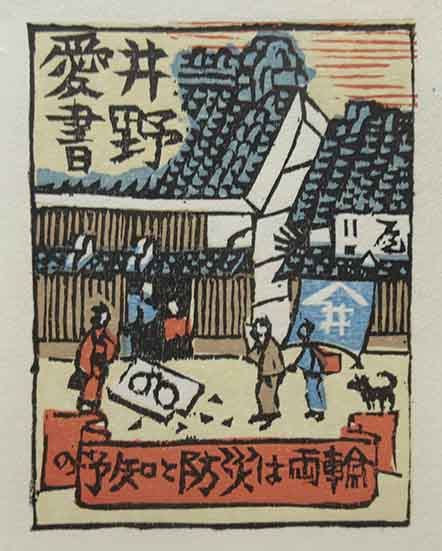 井野
愛書
井
の予知と防災は両輪